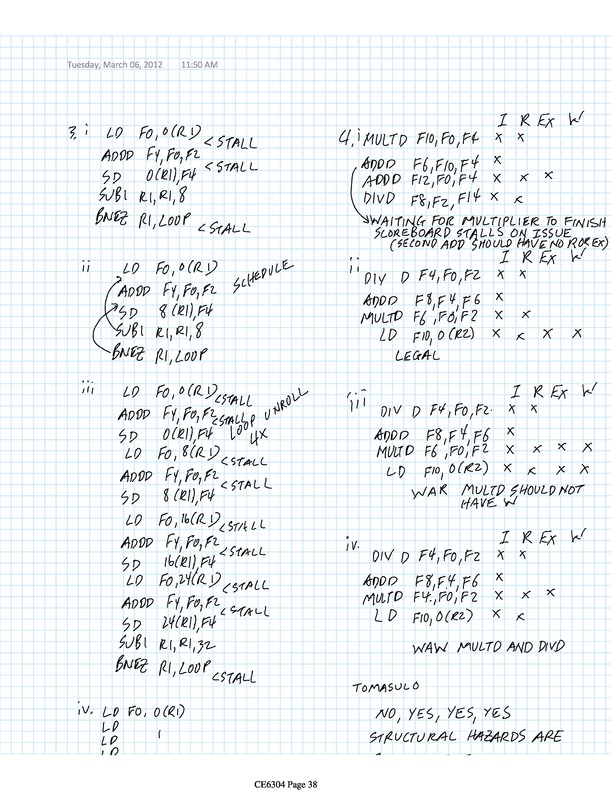 Tuesday, March 06, 2012 11:50 AM
3. i LD F0, 0(R1)
<STALL
ADDD F4, F0, F2
<STALL
SD 0(R1), F4
SUBI R1, R1, 8
BNEZ R1, LOOP
<STALL
ii LD F0, 0(R1)
SCHEDULE
ADDD F4, F0, F2
SD 8(R1), F4
SUBI R1, R1, 8
BNEZ R1, LOOP
iii LD F0, 0(R1)
<STALL
ADDD F4, F0, F2
<STALL LOOP UNROLL 4X
SD 0(R1), F4
LD F0, 8(R1)
<STALL
ADDD F4, F0, F2
<STALL
SD 8(R1), F4
LD F0, 16(R1)
<STALL
ADDD F4, F0, F2
<STALL
SD 16(R1), F4
LD F0, 24(R1)
<STALL
ADDD F4, F0, F2
<STALL
SD 24(R1), F4
SUBI R1, R1, 32
BNEZ R1, LOOP
<STALL
iv. LD F0, 0(R1)
LD
LD
LD
I R EX W
4. i MULTD F10, F0, F4 X X
ADDD F6, F10, F4 X
ADDD F12, F0, F4 X X X
DIVD F8, F2, F14 X X
WAITING FOR MULTIPLIER TO FINISH
SCOREBOARD STALLS ON ISSUE
(SECOND ADD SHOULD HAVE NO R OR EX)
I R EX W
ii DIV D F4, F0, F2 X X
ADDD F8, F4, F6 X
MULTD F6, F0, F2 X X
LD F10, 0(R2) X X X X
LEGAL
I R EX W
iii DIV D F4, F0, F2 X X
ADDD F8, F4, F6 X
MULTD F6, F0, F2 X X X X
LD F10, 0(R2) X X X X
WAR MULTD SHOULD NOT
HAVE W
I R EX W
iv. DIV D F4, F0, F2 X X
ADDD F8, F4, F6 X
MULTD F4, F0, F2 X X X
LD F10, 0(R2) X X
WAW MULTD AND DIVD
TOMASULO
NO, YES, YES, YES
STRUCTURAL HAZARDS ARE
CE6304 Page 38